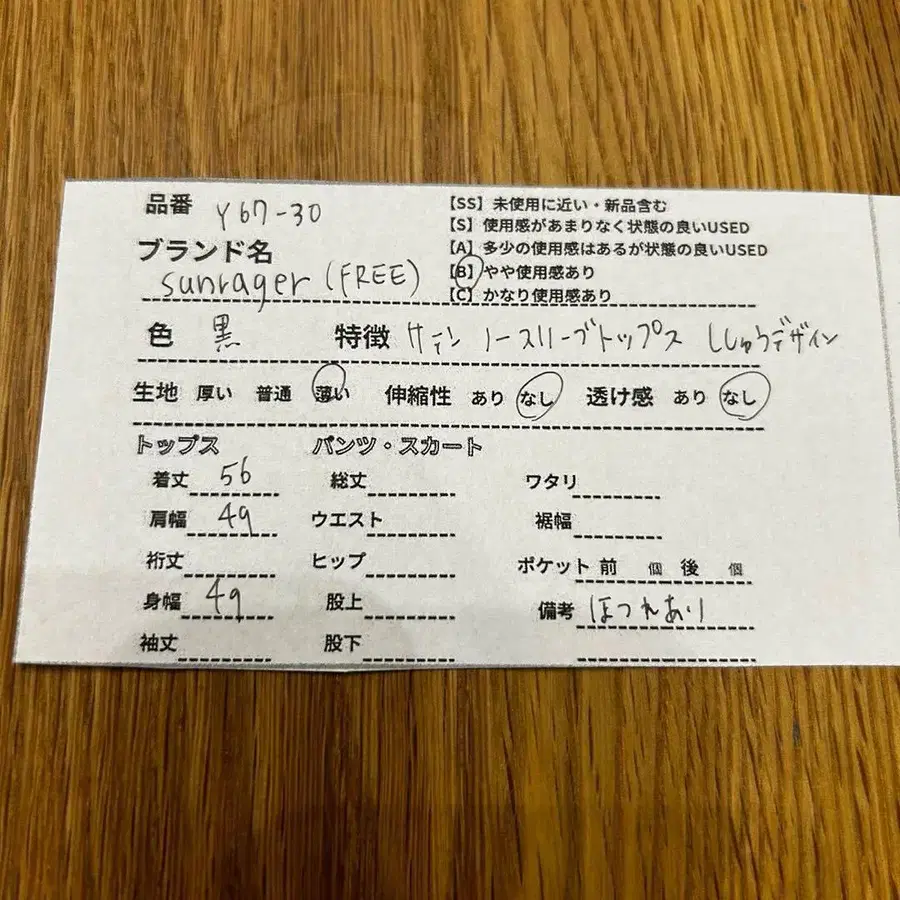 品番 Y67-30
ブランド名
sunrager (FREE)
【SS】未使用に近い・新品含む
【S】使用感があまりなく状態の良いUSED
【A】多少の使用感はあるが状態の良いUSED
【B】やや使用感あり
【C】かなり使用感あり
色 黒 特徴 サテン ノースリーブトップス ししゅうデザイン
生地 厚い 普通 薄い 伸縮性 あり なし 透け感 あり なし
トップス パンツ・スカート
着丈 56 総丈 ワタリ
肩幅 49 ウエスト 裾幅
裄丈 ヒップ ポケット 前 個 後 個
身幅 49 股上 備考 ほつれあり
袖丈 股下